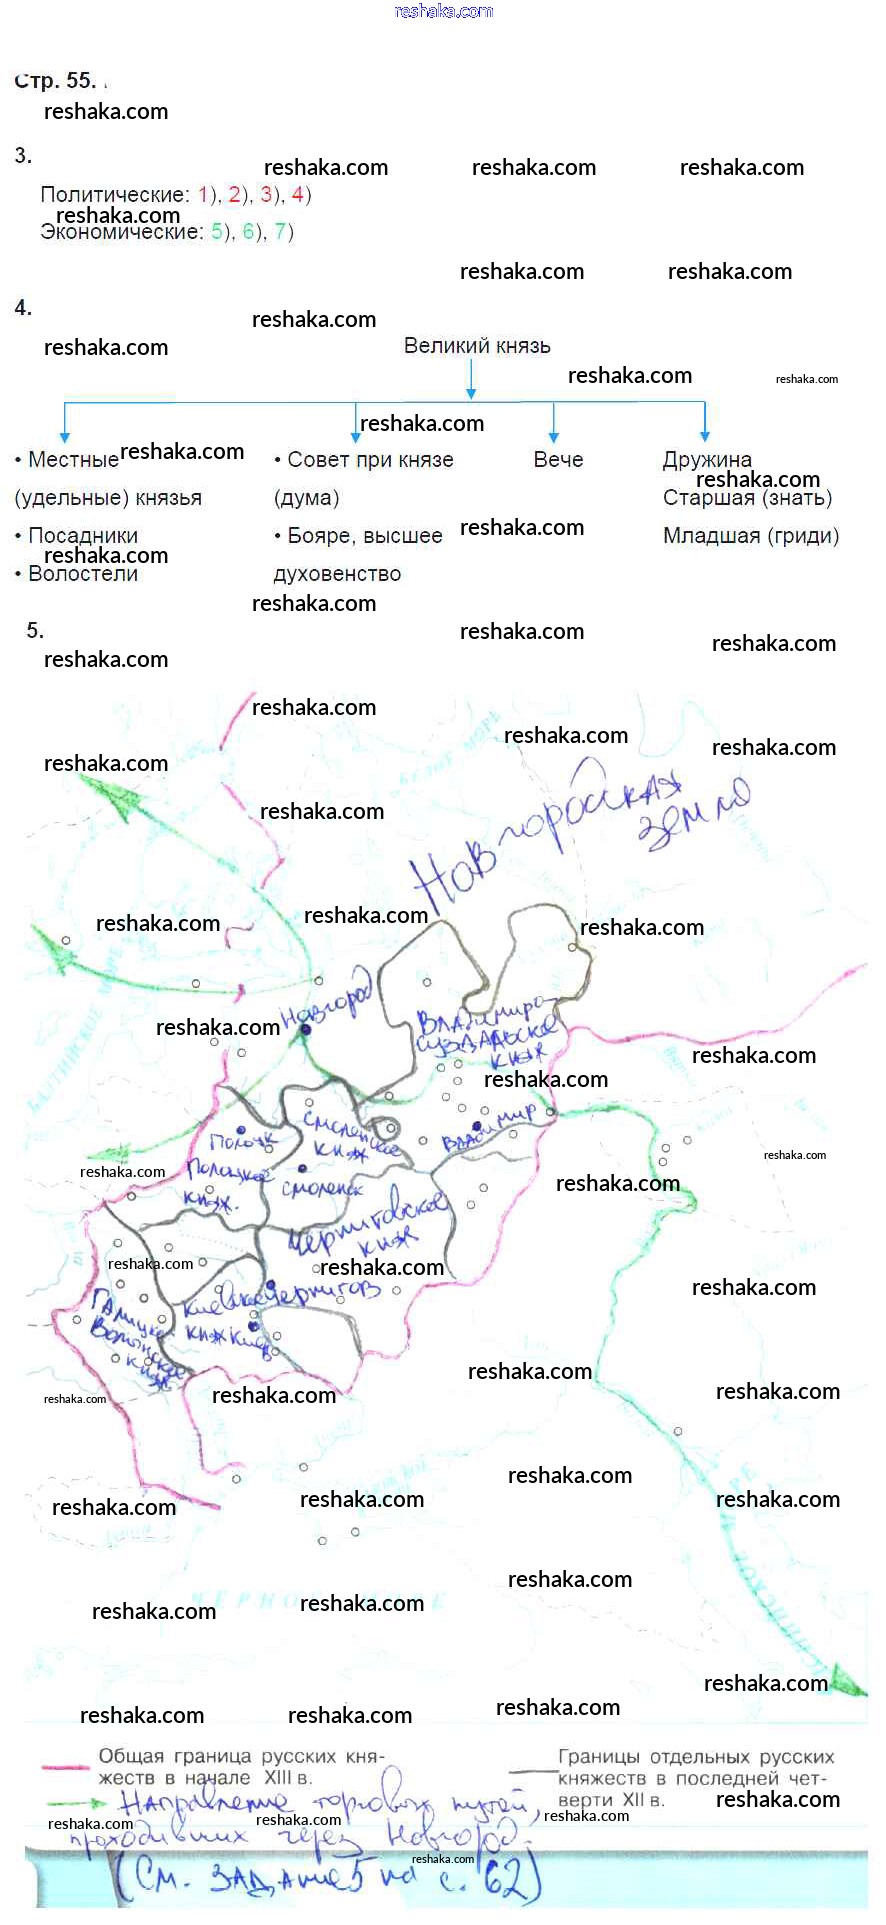 reshaka.com
Стр. 55.
reshaka.com
3.
reshaka.com reshaka.com reshaka.com
Политические: 1), 2), 3), 4)
reshaka.com
Экономические: 5), 6), 7)
reshaka.com reshaka.com
4.
reshaka.com
reshaka.com
Великий князь
reshaka.com reshaka.com
reshaka.com
• Местные reshaka.com • Совет при князе Вече Дружина
reshaka.com
(удельные) князья (дума) Старшая (знать)
• Посадники • Бояре, высшее reshaka.com Младшая (гриди)
reshaka.com
• Волостели духовенство
reshaka.com
5.
reshaka.com reshaka.com
reshaka.com
reshaka.com
БЕЛОЕ МОРЕ
reshaka.com reshaka.com
reshaka.com
Новгородская
земля
reshaka.com
reshaka.com reshaka.com reshaka.com
БАЛТИЙСКОЕ МОРЕ
Новгород
reshaka.com
Владимиро-
Суздальское
княж
reshaka.com
reshaka.com
Смоленское
княж
Владимир
Полоцк
reshaka.com reshaka.com
Полоцкое
княж.
Смоленск
reshaka.com
Черниговское
княж
reshaka.com reshaka.com
reshaka.com
Чернигов
Киевское
княж Киев
Галицко-
Волынское
княж
reshaka.com
reshaka.com reshaka.com reshaka.com
reshaka.com
reshaka.com reshaka.com reshaka.com
КАСПИЙСКОЕ МОРЕ
reshaka.com
ЧЕРНОЕ МОРЕ
reshaka.com reshaka.com
reshaka.com
reshaka.com reshaka.com reshaka.com
Общая граница русских кня-
жеств в начале XIII в.
Границы отдельных русских
княжеств в последней чет-
верти XII в.
reshaka.com
Направление торговых путей,
reshaka.com reshaka.com reshaka.com
проходивших через Новгород.
reshaka.com
(См. задание 5 на с. 62)